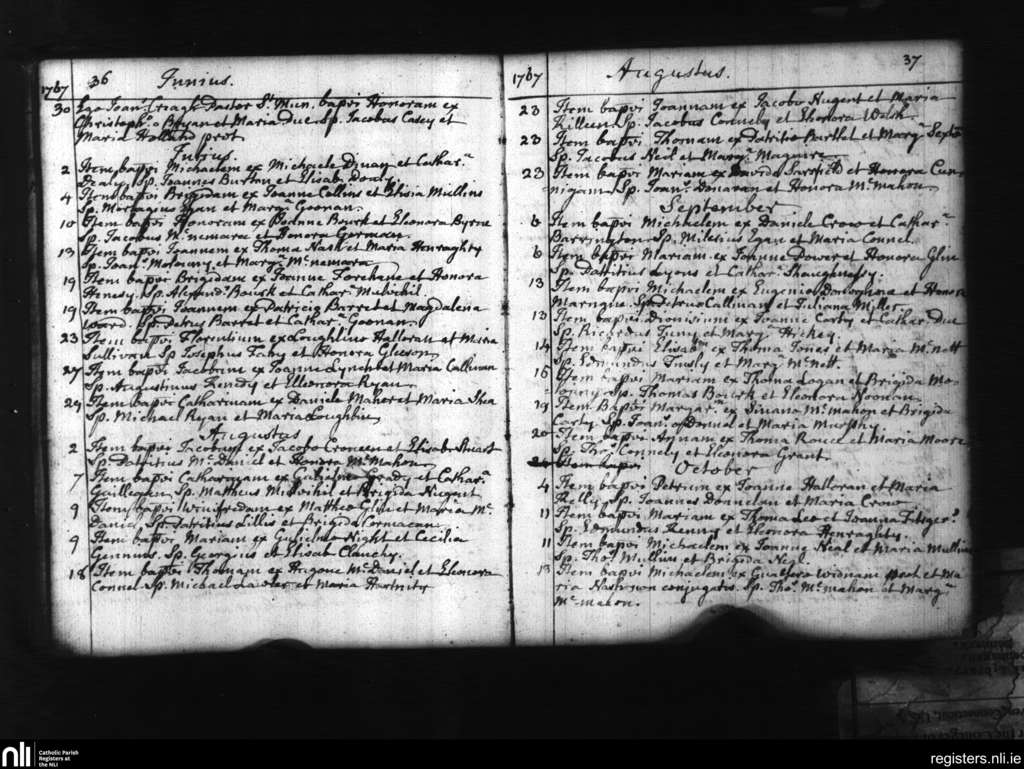 1767 36 Junius.
30 Ego Joan: Creagh Pastor St. Mun. bapvi Honoram ex
Christoph: o Bryan et Maria Due Sp. Jacobus Casey et
Maria Holland prot
Julius.
2 Item bapvi Michaelem ex Michaele Dinan et Cathar:
Sp. Joannes Burton et Elisab:
4 Item bapvi Brigidam ex Joanne Collens et Elisia Mullins
Sp. Mortagius Egan et Marg: Goonan.
10 Item bapvi Honoram ex Joanne Bourk et Elionora Byrne
Sp. Jacobus Mcnemara et Honora Gorman.
13 Item bapvi Joannem ex Thoma Nash et Maria Henraghty
Sp. Joan: Molouny et Marg: Mcnemara
19 Item bapvi Brigidam ex Joanne Forehane et Honora
Henesy Sp. Alexand: Bourk et Cathar: Mulvihil
19 Item bapvi Joannem ex Patricio Barret et Magdalena
Ward. Sp. Petrus Barret et Cathar: Goonan.
23 Item bapvi Florentium ex Loughlius Halloran et Maria
Sullivan Sp Josephus Fahy et Honora Gleeson
27 Item bapvi Jacobum ex Joanne Lynch et Maria Callinan
Sp. Augustinus Kendy et Elleonora Ryan
29 Item bapvi Catharinam ex Daniele Maher et Maria Shea
Sp. Michael Ryan et Maria Loughlin
Augustus
2 Item bapvi Jacobum ex Jacobo Croneen et Elisab: Stuart
Sp. Patritius Mc Daniel et Honora Mc Mahon
7 Item bapvi Catharinam ex Gulielmo Grady et Cathar:
Sp. Mattheus Mulvihil et Brigida Nugent
9 Item bapvi Winifridam ex Mattheo Glin et Maria Mc
Daniel Sp. Patritius Lillis et Brigida Cormacan
9 Item bapvi Mariam ex Gulielmo Hight et Cecilia
Sp. Georgius et Elisab Clanchy.
18 Item bapvi Thomam ex Hugone Mc Daniel et Elenora
Connel Sp. Michael Lawler et Maria Hartnity
1767 Augustus. 37
23 Item bapvi Joannam ex Jacobo Nugent et Maria
Killeen Sp. Jacobus Connely et Elionora Walsh.
23 Item bapvi Thomam ex Patritio Burtlet et Marg:
Sp. Jacobus Neil et Marg: Maguire
23 Item bapvi Mariam ex Davida Sarsfild et Honora Cun
nigam Sp. Joan: Donavan et Honora Mc mahon
September
6 Item bapvi Michhelem ex Daniele Crow et Cathar:
Barrington Sp. Milesius Egan et Maria Connel
6 Item bapvi Mariam ex Joanne Dower et Honora Glin
Sp. Patritius Lyons et Cathar: Shaughnessy.
13 Item bapvi Michaelem ex Eugenio Donoghue et Honora
Sp. Petrus Callinan et Juliana Miller
13 Item bapvi Dionisium ex Joanne Carty et Cathar Due
Sp. Ricardus Tuny et Marg: Hickey
14 Item bapvi Elisab: ex Thoma Jones et Maria Mc nett
Sp. Edmundus et Marg: Mc nett.
16 Item bapvi Mariam ex Thoma Logan et Brigida Mo
louny Sp. Thomas Bourk et Eleonora Noonan
19 Item Bapvi Margar: ex Sinana Mc mahon et Brigida
Carty Sp. Joan: o Donnel et Maria Murphy
20 Item bapvi Annam ex Thoma Rouce et Maria Moore
Sp. Tho: Connely et Eleonora Grant.
Item bapvi October
4 Item bapvi Petrum ex Joanne Halloran et Maria
Kelly Sp. Joannes Donnelan et Maria Crow
11 Item bapvi Mariam ex Thoma Leo et Joanna Fitzger:
Sp. Edmundus Henry et Eleonora Henraghty.
11 Item bapvi Michaelem ex Joanne Neal et Maria Mullins
Sp. Tho: Mullins et Brigida Negl.
13 Item bapvi Michaelem ex Gualtero Widnam et Ma
ria Nash non conjugatis. Sp. Tho: Mc mahon et Marg:
Mc mahon.
nli Catholic Parish
Registers at
the NLI
registers.nli.ie